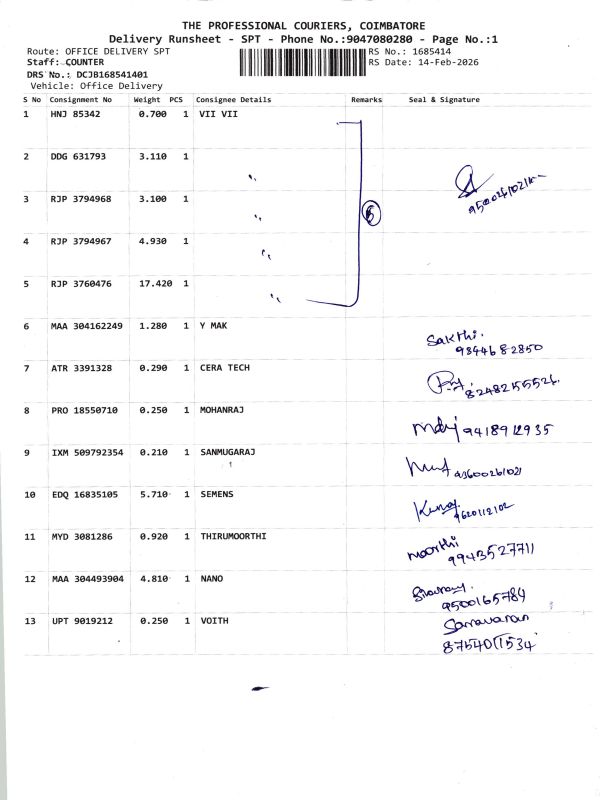 THE PROFESSIONAL COURIERS, COIMBATORE
Delivery Runsheet - SPT - Phone No.:9047080280 - Page No.:1
Route: OFFICE DELIVERY SPT RS No.: 1685414
Staff: COUNTER RS Date: 14-Feb-2026
DRS No.: DCJB168541401
Vehicle: Office Delivery
S No Consignment No Weight PCS Consignee Details Remarks Seal & Signature
1 HNJ 85342 0.700 1 VII VII
2 DDG 631793 3.110 1 "
3 RJP 3794968 3.100 1 " 5
4 RJP 3794967 4.930 1 "
5 RJP 3760476 17.420 1 "
6 MAA 304162249 1.280 1 Y MAK Sakthi.
9344682850
7 ATR 3391328 0.290 1 CERA TECH
8 PRO 18550710 0.250 1 MOHANRAJ
9 IXM 509792354 0.210 1 SANMUGARAJ
10 EDQ 16835105 5.710 1 SEMENS
11 MYD 3081286 0.920 1 THIRUMOORTHI moorthi
9943527711
12 MAA 304493904 4.810 1 NANO
9500165784
13 UPT 9019212 0.250 1 VOITH Saravanan
8754011534